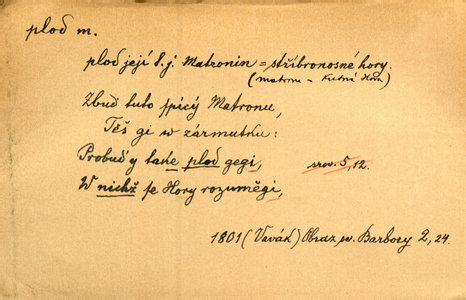 plod m.
plod její t. j. Matronin = stříbronosné hory.
(matrona – Kutná Hora)
Zbuď tuto spicý Matronu,
Těš gi w zármutku:
Probuď y take plod gegi, srov. 5, 12.
W nichž se Hory rozuměgi,
1801 (Vavák) Obraz sv. Barbory 2, 24.